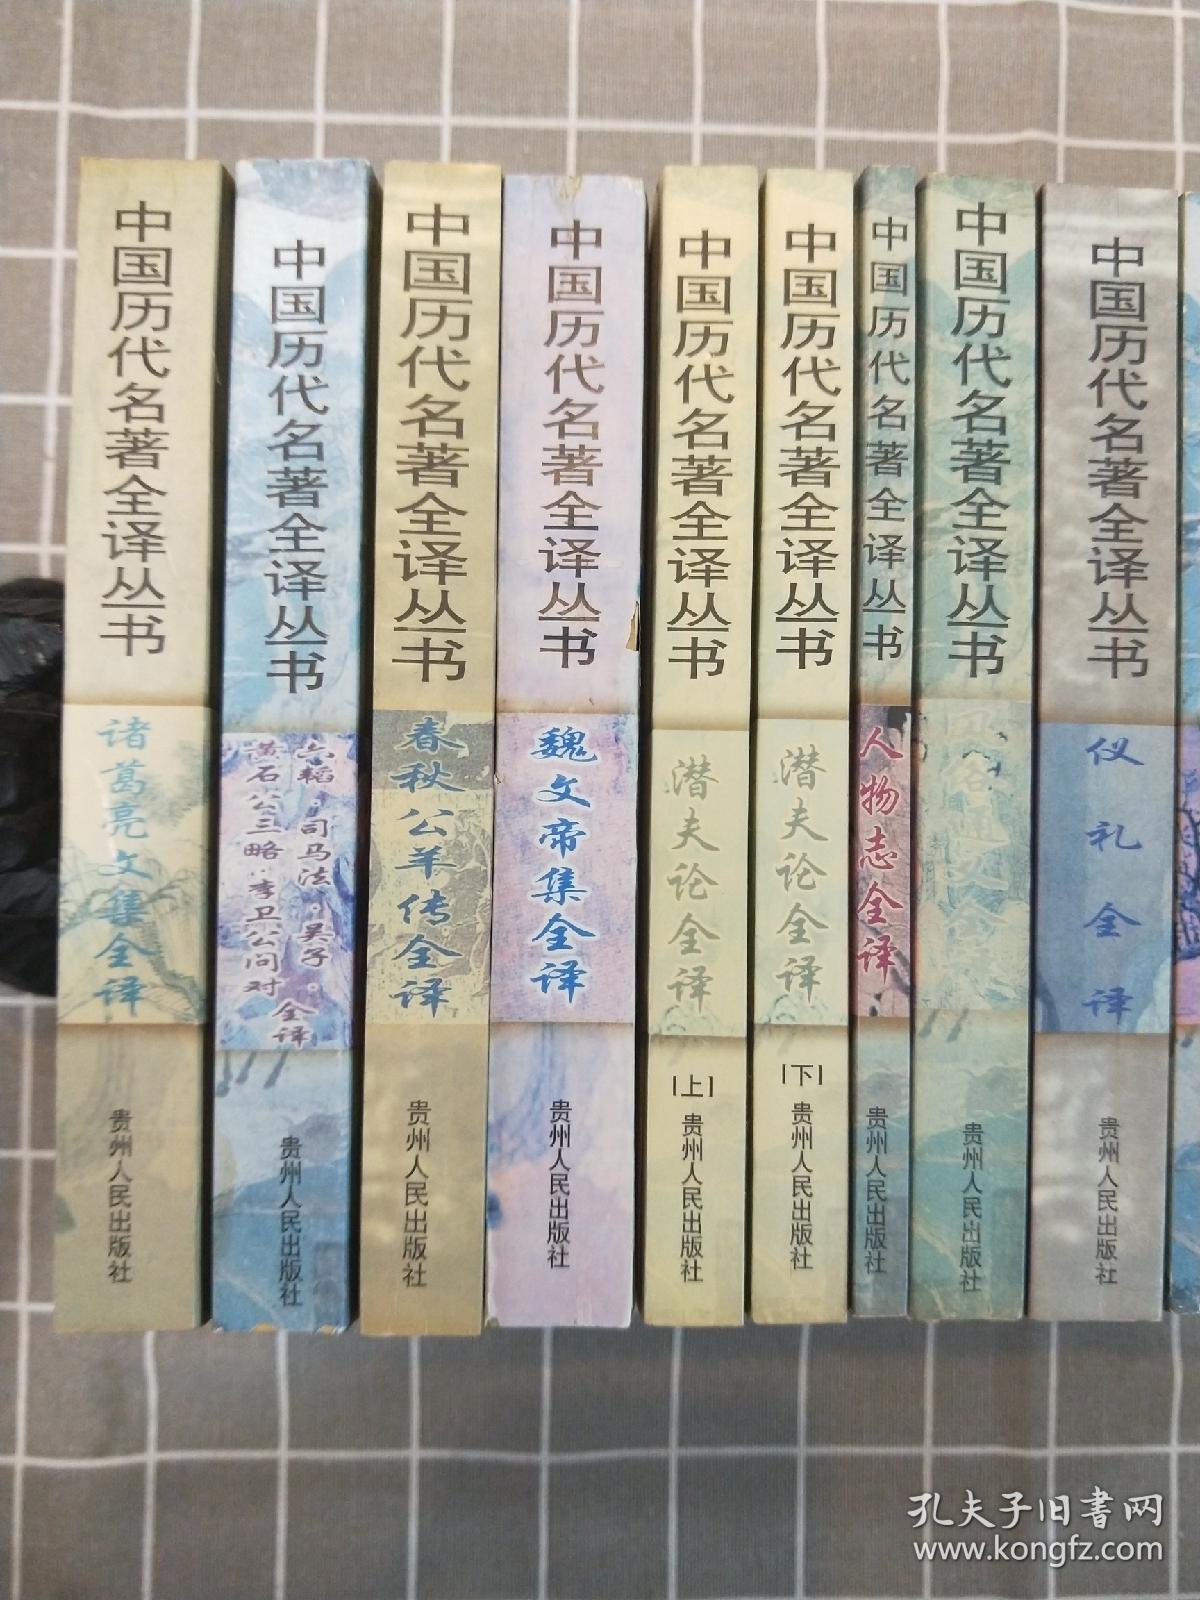 中国历代名著全译丛书
诸葛亮文集全译
贵州人民出版社
中国历代名著全译丛书
六韬·司马法·吴子·
黄石公三略·李卫公问对
全译
贵州人民出版社
中国历代名著全译丛书
春秋公羊传全译
贵州人民出版社
中国历代名著全译丛书
魏文帝集全译
贵州人民出版社
中国历代名著全译丛书
潜夫论全译
[上]
贵州人民出版社
中国历代名著全译丛书
潜夫论全译
[下]
贵州人民出版社
中国历代名著全译丛书
人物志全译
贵州人民出版社
中国历代名著全译丛书
贵州人民出版社
中国历代名著全译丛书
仪礼全译
贵州人民出版社
孔夫子旧书网
www.kongfz.com